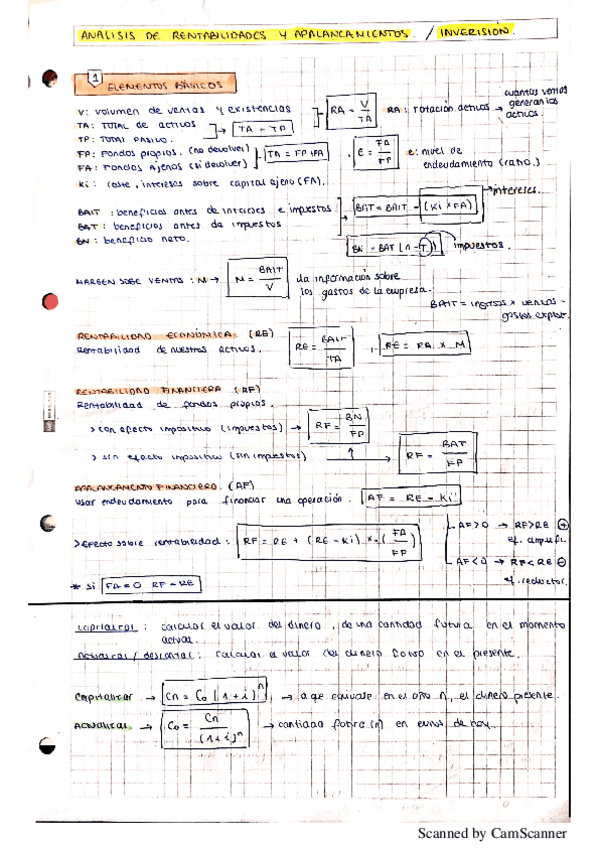 ANALISIS DE RENTABILIDADES Y APALANCAMIENTOS. / INVERISIÓN.
1 ELEMENTOS BÁSICOS
V: volumen de ventas y existencias
RA = V / TA
RA: rotación activos → cuantas ventas generan los activos.
TA: TOTAL de activos
TP: TOTAL pasivo.
TA = TP
FP: Fondos propios. (no devolver)
FA: Fondos Ajenos (si devolver)
TA = FP + FA
e = FA / FP
e: nivel de endeudamiento (ratio.)
Ki: coste, intereses sobre capital ajeno (FA).
BAIT: beneficios antes de intereses e impuestos
BAT: beneficios antes de impuestos
BN: beneficio neto.
BAT = BAIT - (Ki x FA) → intereses.
BN = BAT (1 - T) impuestos.
MARGEN SOBE VENTAS: M →
M = BAIT / V
da información sobre
los gastos de la empresa.
BAIT = ingresos x ventas -
gastos explot.
RENTABILIDAD ECONÓMICA. (RE)
Rentabilidad de nuestros activos.
RE = BAIT / TA
RE = RA x M
RENTABILIDAD FINANCIERA (RF)
Rentabilidad de fondos propios.
> con efecto impositivo (impuestos) → RF = BN / FP
> sin efecto impositivo (sin impuestos) → RF = BAT / FP
APALANCAMIENTO FINANCIERO. (AF)
usar endeudamiento para financiar una operación.
AF = RE - Ki
> Efecto sobre rentabilidad: RF = RE + (RE - Ki) x (FA / FP)
AF>0 → RF>RE ⊕
ef. amplifi.
AF<0 → RF<RE ⊖
ef. reductor.
* si FA=0 RF=RE
capitalizar: calcular el valor del dinero, de una cantidad futura en el momento
actual.
Actualizar / descontar: calcular el valor del dinero en el presente.
Capitalizar → Cn = C0 (1+i)^n → a que equivale en el año n, el dinero presente.
Actualizar → C0 = Cn / (1+i)^n → cantidad futura (n) en euros de hoy.
Scanned by CamScanner